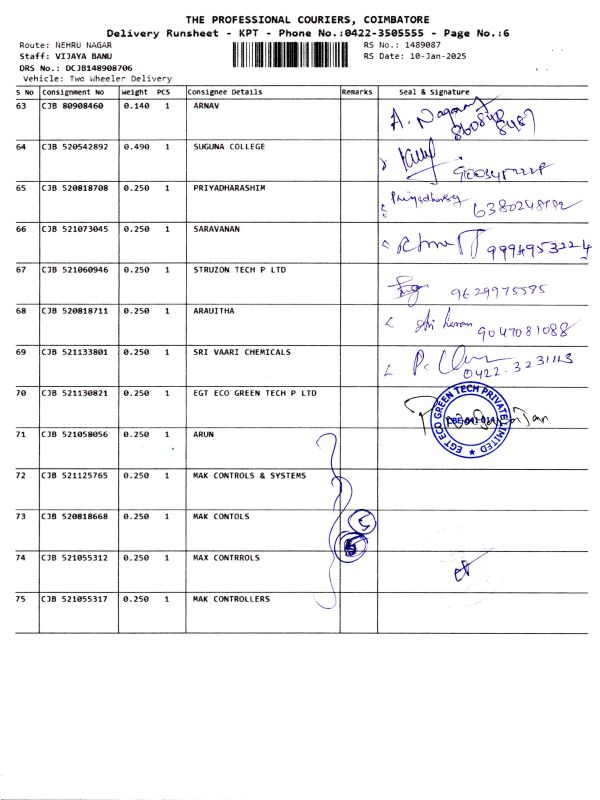 THE PROFESSIONAL COURIERS, COIMBATORE
Delivery Runsheet - KPT - Phone No.:0422-3505555 - Page No.:6
Route: NEHRU NAGAR RS No.: 1489087
Staff: VIJAYA BANU RS Date: 10-Jan-2025
DRS No.: DCJB148908706
Vehicle: Two Wheeler Delivery
S No Consignment No Weight PCS Consignee Details Remarks Seal & Signature
63 CJB 80908460 0.140 1 ARNAV
64 CJB 520542892 0.490 1 SUGUNA COLLEGE
65 CJB 520818708 0.250 1 PRIYADHARASHIM
66 CJB 521073045 0.250 1 SARAVANAN
67 CJB 521060946 0.250 1 STRUZON TECH P LTD
9629975585
68 CJB 520818711 0.250 1 ARAUITHA
9047081088
69 CJB 521133801 0.250 1 SRI VAARI CHEMICALS
70 CJB 521130821 0.250 1 EGT ECO GREEN TECH P LTD
EGT ECO GREEN TECH PRIVATE LIMITED
71 CJB 521058056 0.250 1 ARUN
72 CJB 521125765 0.250 1 MAK CONTROLS & SYSTEMS
73 CJB 520818668 0.250 1 MAK CONTOLS
5
74 CJB 521055312 0.250 1 MAX CONTRROLS
75 CJB 521055317 0.250 1 MAK CONTROLLERS